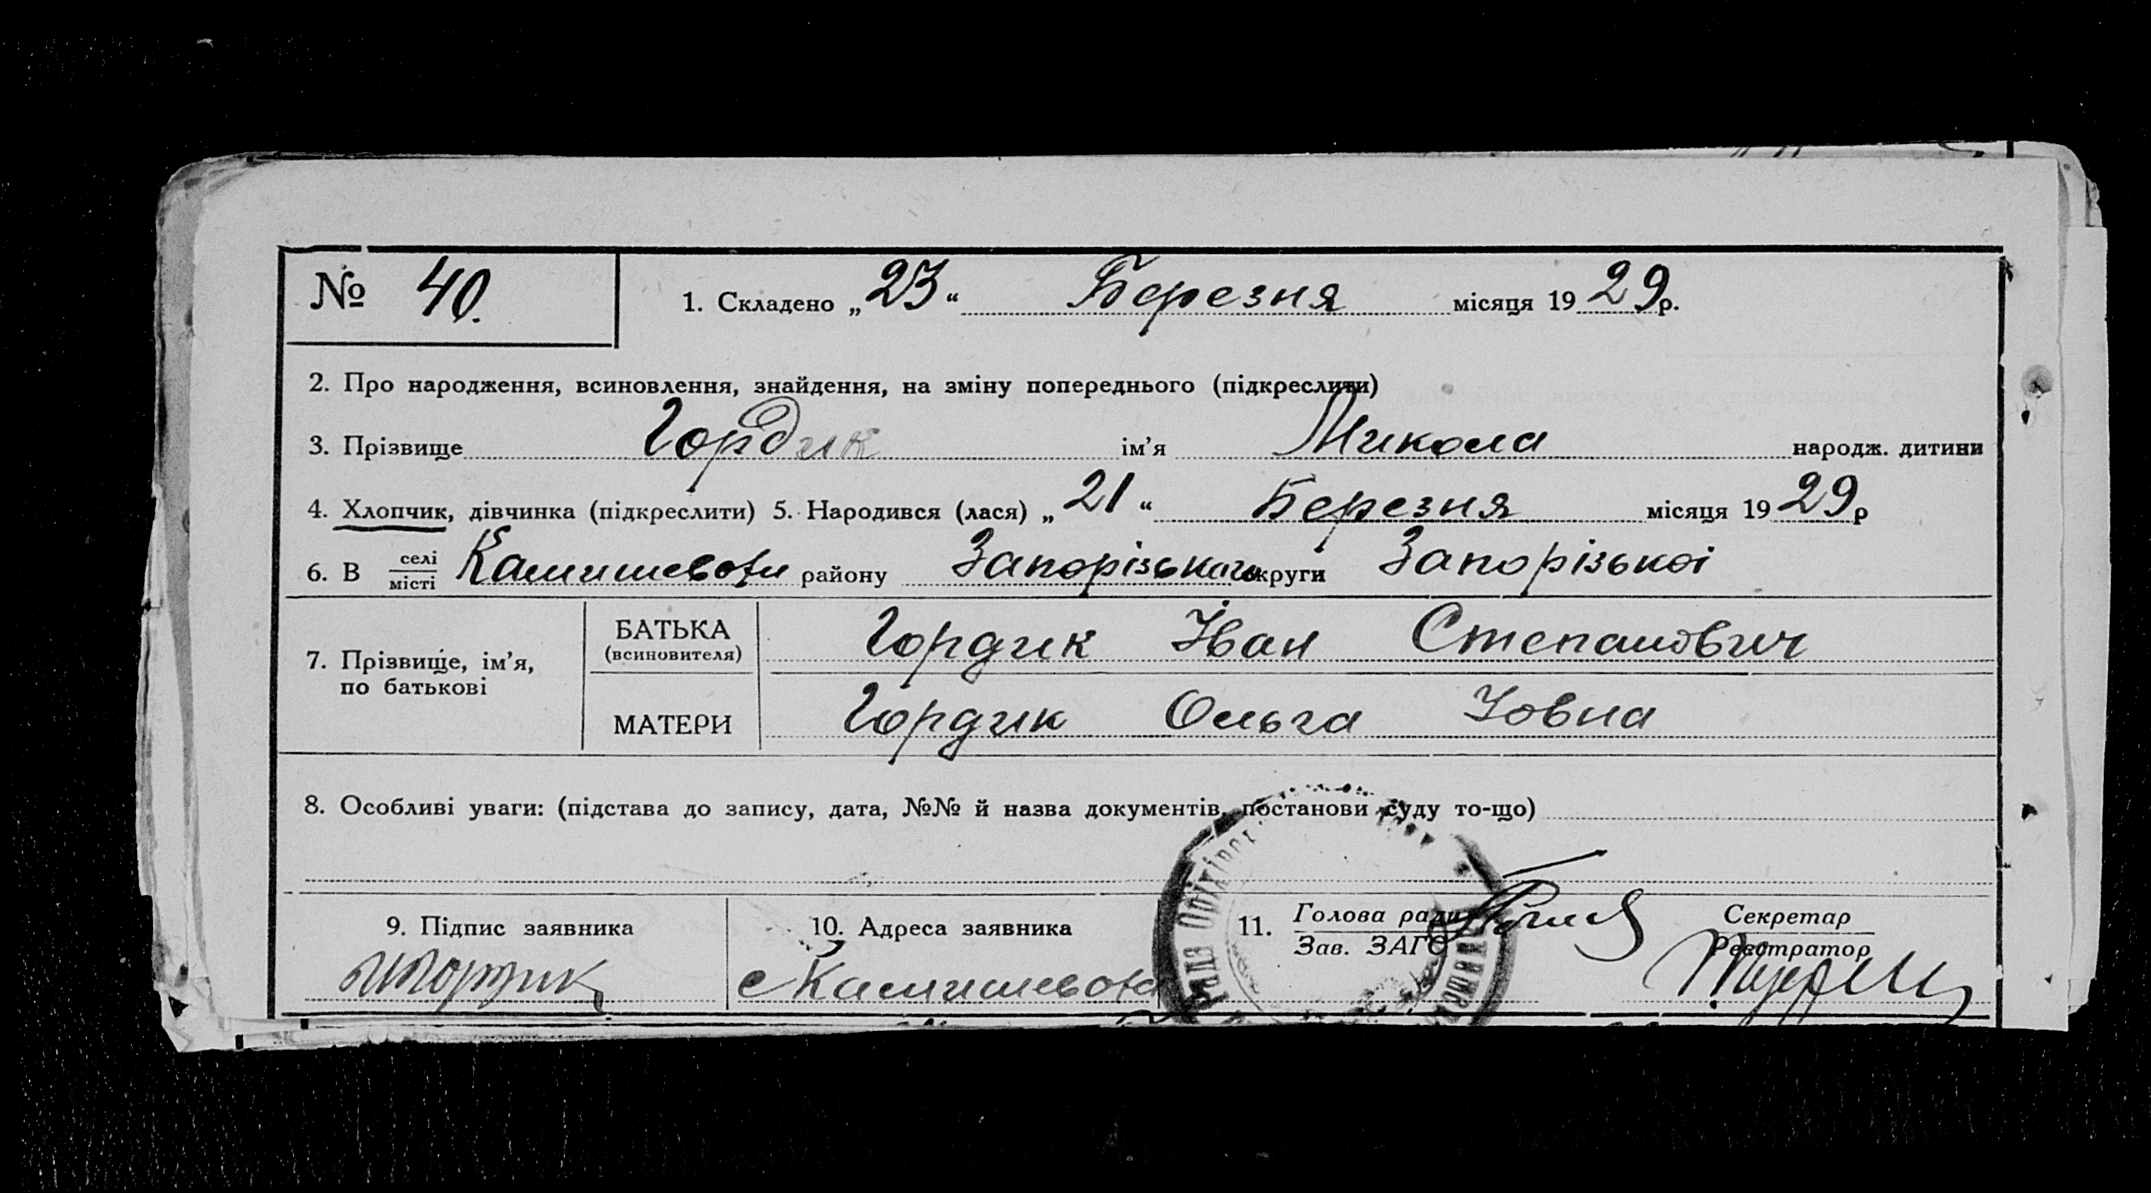 № 40.
1. Складено „23“ Березня місяця 1929р.
2. Про народження, всиновлення, знайдення, на зміну попереднього (підкреслити)
3. Прізвище Гордик ім’я Микола народж. дитини
4. Хлопчик, дівчинка (підкреслити) 5. Народився (лася) „21“ Березня місяця 1929р
6. В селі місті Камишевоха району Запорізького округи Запорізької
7. Прізвище, ім’я, по батькові
БАТЬКА (всиновителя) Гордик Іван Степанович
МАТЕРИ Гордик Ольга Йовна
8. Особливі уваги: (підстава до запису, дата, №№ й назва документів, постанови суду то-що)
9. Підпис заявника
10. Адреса заявника
11. Голова ради
Зав. ЗАГС
Секретар
Реєстратор
Гордик
с Камишеваха
Рада Оріхівс